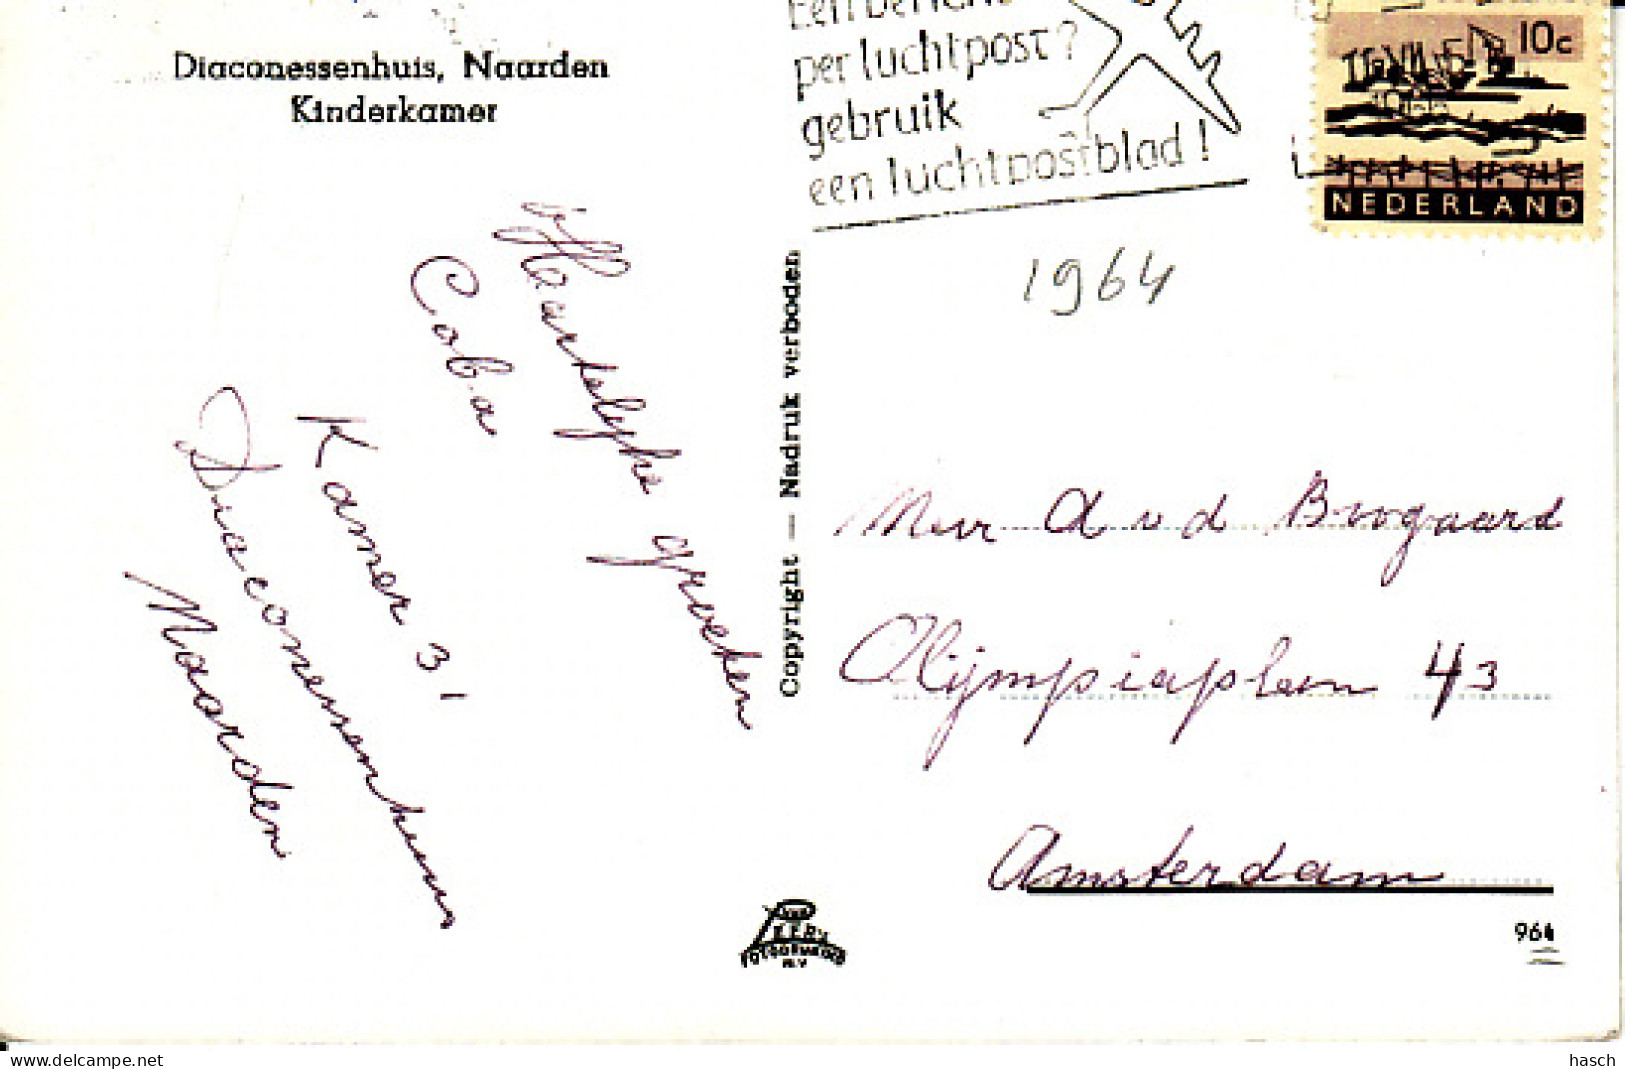 Diaconessenhuis, Naarden
Kinderkamer
Een bericht
per luchtpost?
gebruik
een luchtpostblad!
10c
NEDERLAND
1964
Hartelijke groeten
Coba
Kamer 31
Diaconessenhuis
Naarden
Copyright — Nadruk verboden
Mevr A v d Boogaard
Olijmpiaplein 43
Amsterdam
964
N.V.
delcampe.net
hasch